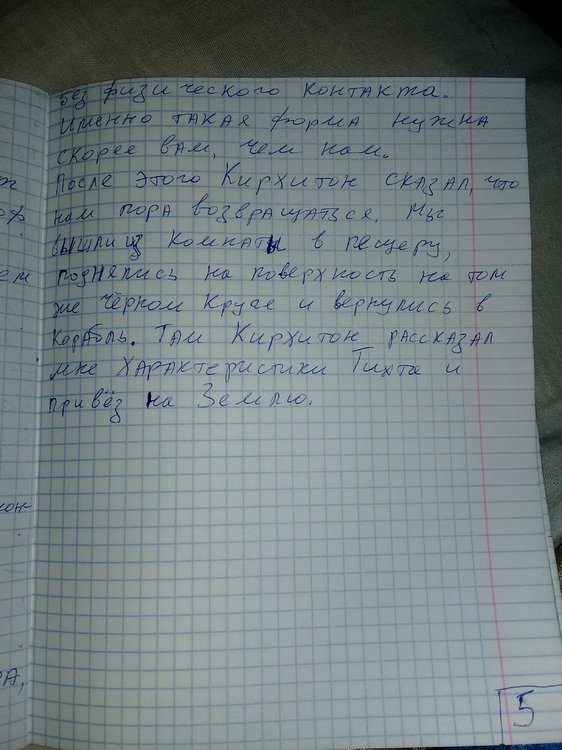 без физического контакта.
Именно такая форма нужна
скорее вам, чем нам.
После этого Кирхитон сказал, что
нам пора возвращаться. Мы
вышли из комнаты в пещеру,
поднялись на поверхность на том
же чёрном круге и вернулись в
корабль. Там Кирхитон рассказал
мне характеристики Тихта и
привёз на Землю.
5